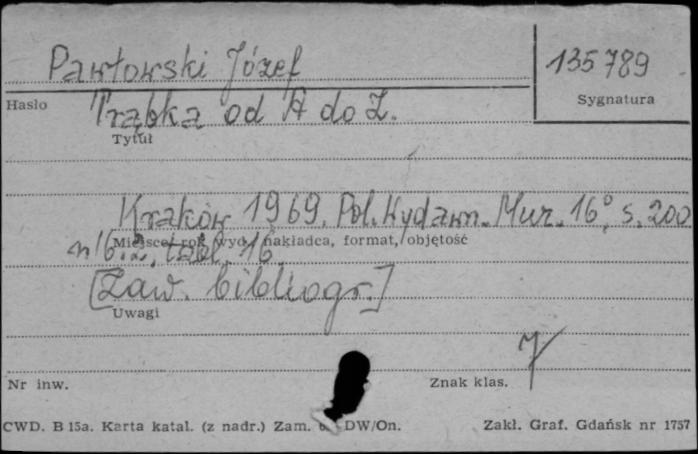 Pawłowski Józef
135789
Hasło
Sygnatura
Trąbka od A do Z.
Tytuł
Kraków 1969. Pol. Wydawn. Muz. 16°, s. 200
Miejsce, rok wyd., nakładca, format, objętość
nlb. 2, tabl. 16.
[Zaw. bibliogr.]
Uwagi
7
Nr inw.
Znak klas.
CWD. B 15a. Karta katal. (z nadr.) Zam. DW/On.
Zakł. Graf. Gdańsk nr 1757